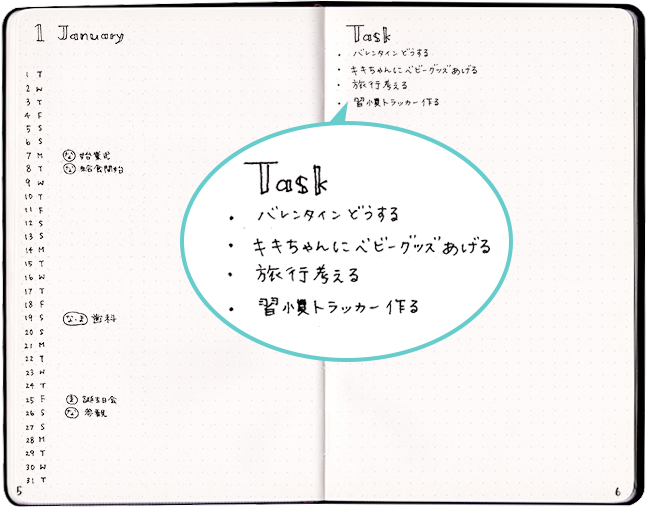 1 January
1 T
2 W
3 T
4 F
5 S
6 S
7 M な 始業式
8 T な 給食開始
9 W
10 T
11 F
12 S
13 S
14 M
15 T
16 W
17 T
18 F
19 S な・ま 歯科
20 S
21 M
22 T
23 W
24 T
25 F ま 誕生日会
26 S な 参観
27 S
28 M
29 T
30 W
31 T
5
Task
・ バレンタインどうする
・ キキちゃんにベビーグッズあげる
・ 旅行考える
・ 習慣トラッカー作る
Task
・ バレンタインどうする
・ キキちゃんにベビーグッズあげる
・ 旅行考える
・ 習慣トラッカー作る
6